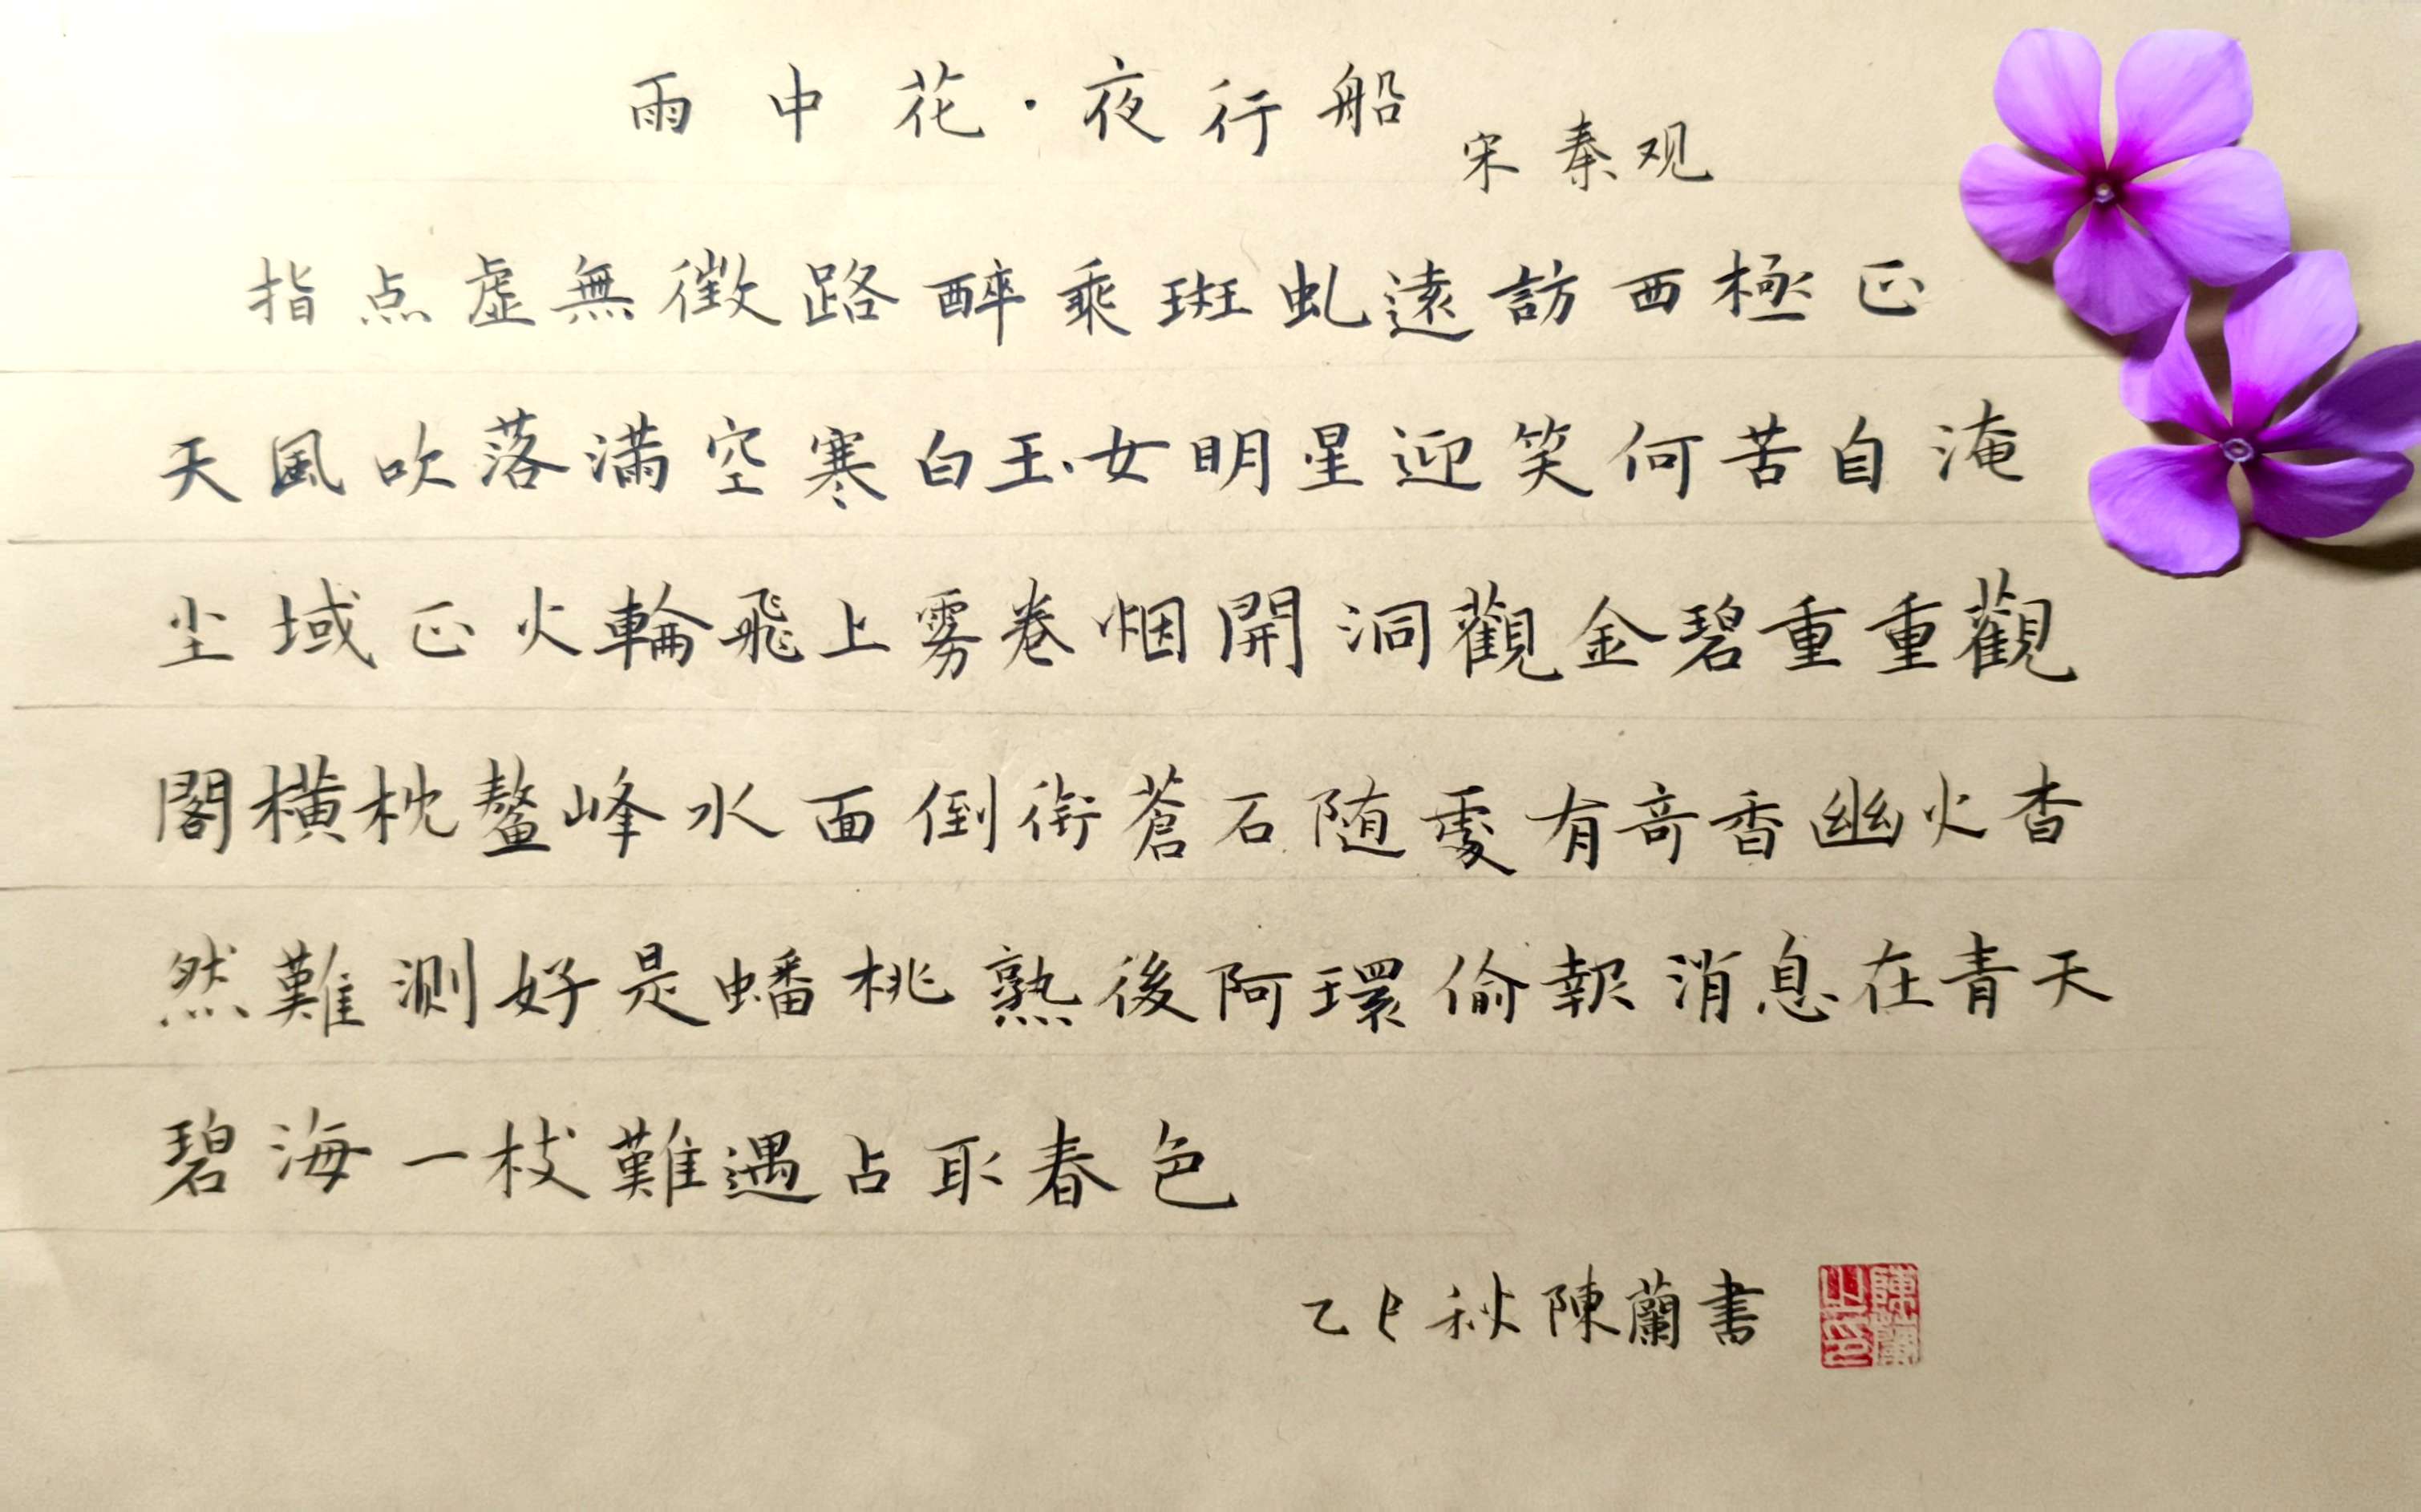 雨中花·夜行船
宋秦观
指点虚無徵路醉乘斑虬遠訪西極正
天風吹落滿空寒白玉女明星迎笑何苦自淹
尘域正火輪飛上雾卷烟開洞觀金碧重重觀
閣横枕鳌峰水面倒衔蒼石随處有奇香幽火杳
然難测好是蟠桃熟後阿環偷報消息在青天
碧海一枝難遇占取春色
乙巳秋陳蘭書
陳蘭之印